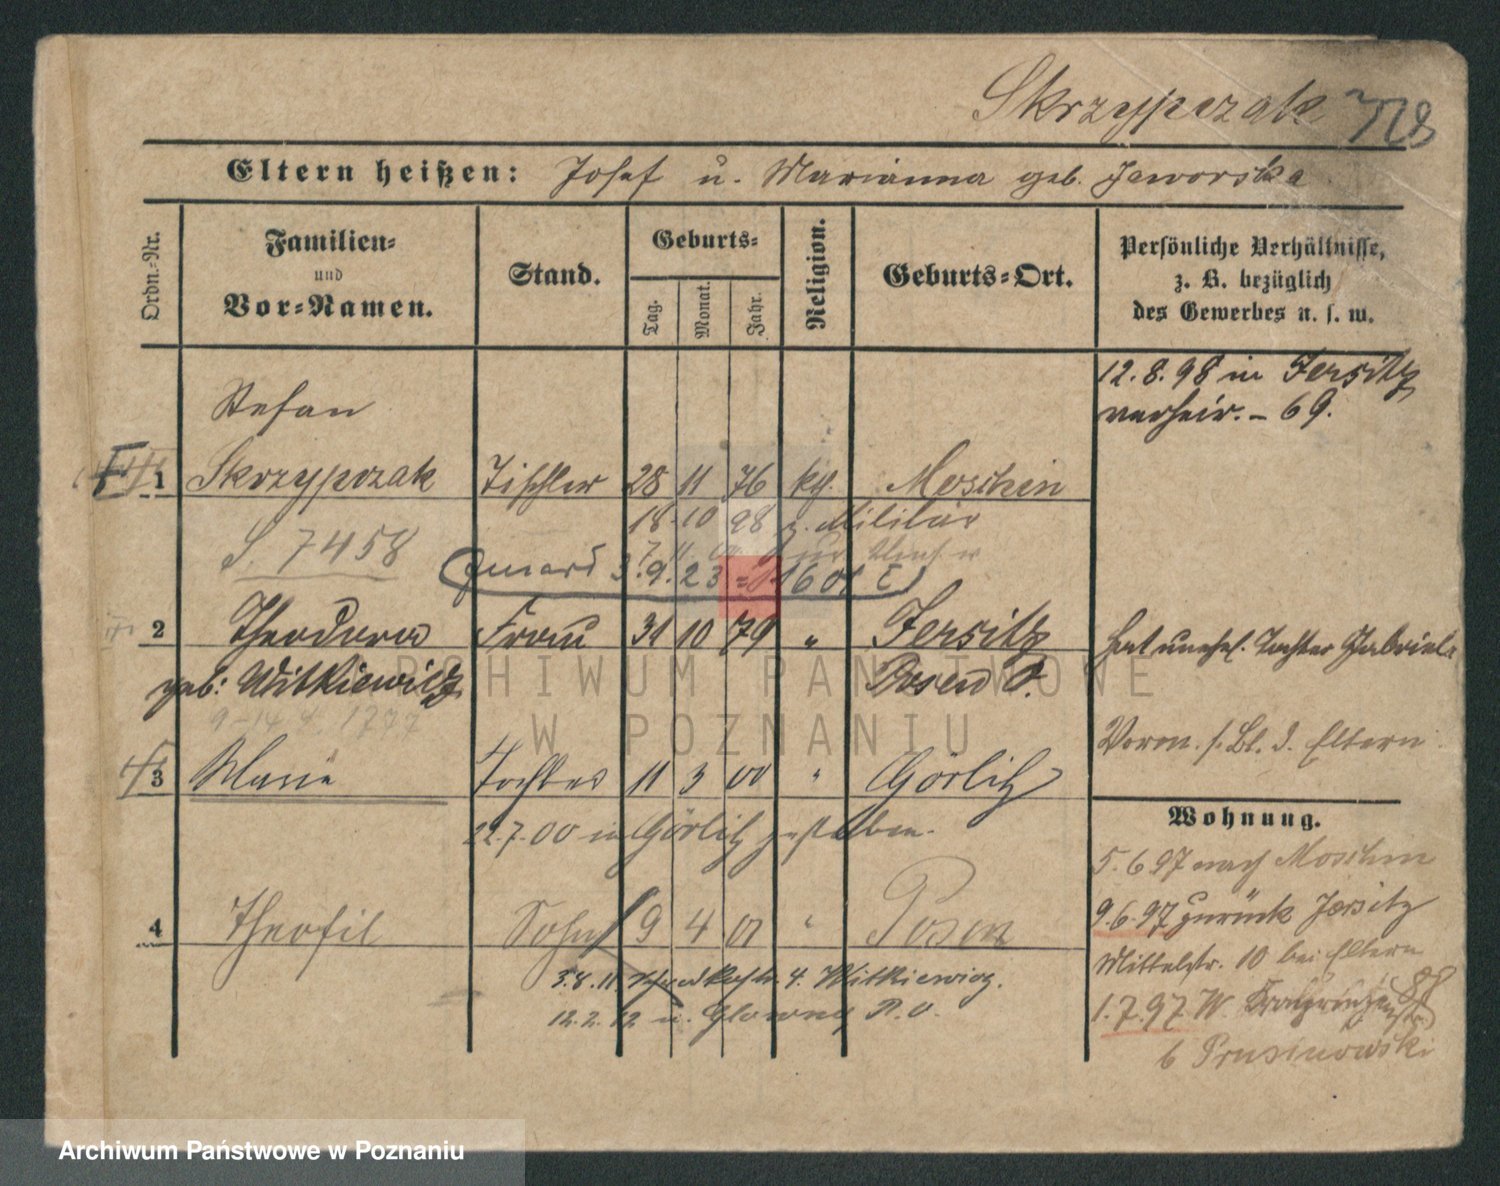 Skrzypczak
Eltern heißen: Josef u. Marianna geb. Jaworska.
Ordn.-Nr.
Familien- und Vor-Namen.
Stand.
Geburts-
Tag.
Monat.
Jahr.
Religion.
Geburts-Ort.
Persönliche Verhältnisse,
z. B. bezüglich
des Gewerbes u. s. w.
12.8.98 in Jersitz
verheir. – 69.
Stefan
1 Skrzypczak Tischler 28 11 76 kth. Moschin
18-10 98 z. Militär
S. 7458
3.9.23
2 Theodora Frau 31 10 79 " Jersitz
geb: Witkiewicz Posen O.
Hat unehel. Tochter Gabriele
Vorm. s. Bl. d. Eltern
3 Marie Tochter 11 3 00 " Görlitz
22.7.00 in Görlitz gestorben.
4 Theofil Sohn 9 4 01 " Posen
3.8.11 b. Witkiewicz.
12.2.12 n. Glowno P.O.
Wohnung.
5.6.97 nach Moschin
9.6.97 zurück Jersitz
Mittelstr. 10 bei Eltern
1.7.97 W. Kronprinzenstr. 88
b Prusinowski
ARCHIWUM PAŃSTWOWE
W POZNANIU
Archiwum Państwowe w Poznaniu